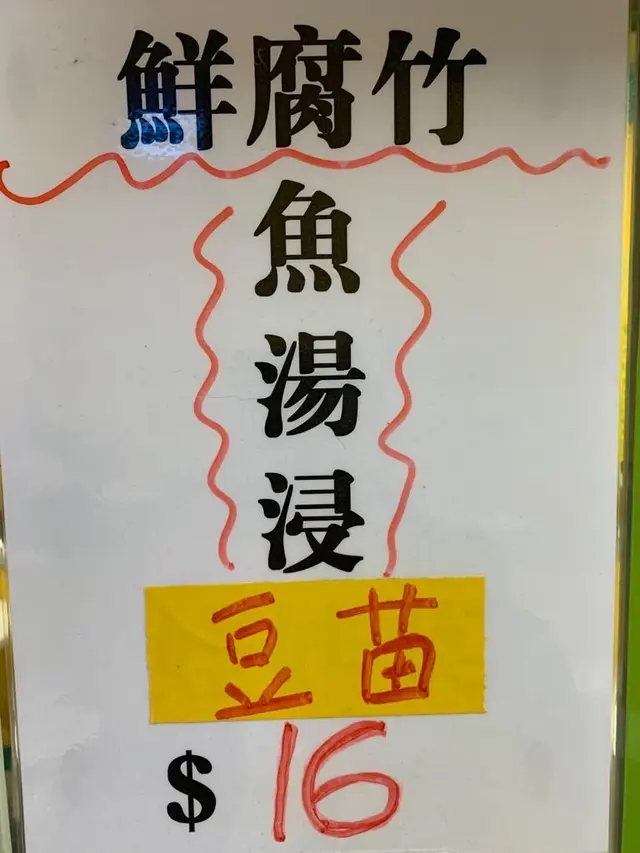 鮮腐竹
魚湯浸
豆苗
$16